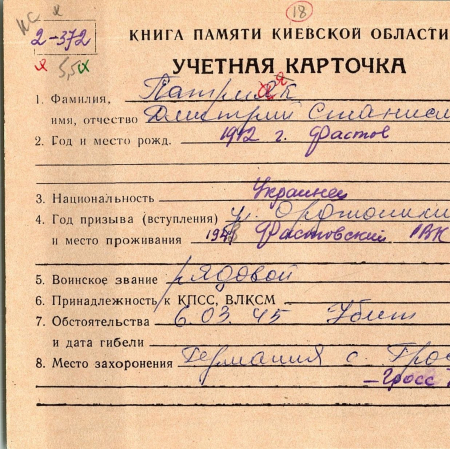 18
2-372
КНИГА ПАМЯТИ КИЕВСКОЙ ОБЛАСТИ
УЧЕТНАЯ КАРТОЧКА
1. Фамилия,
имя, отчество Дмитрий
2. Год и место рожд. 1912 г. Фастов
3. Национальность Украинец
4. Год призыва (вступления)
и место проживания Фастовский РВК
5. Воинское звание рядовой
6. Принадлежность к КПСС, ВЛКСМ
7. Обстоятельства 6.03.45 Убит
и дата гибели
8. Место захоронения Германия с. Грос
-Гросс